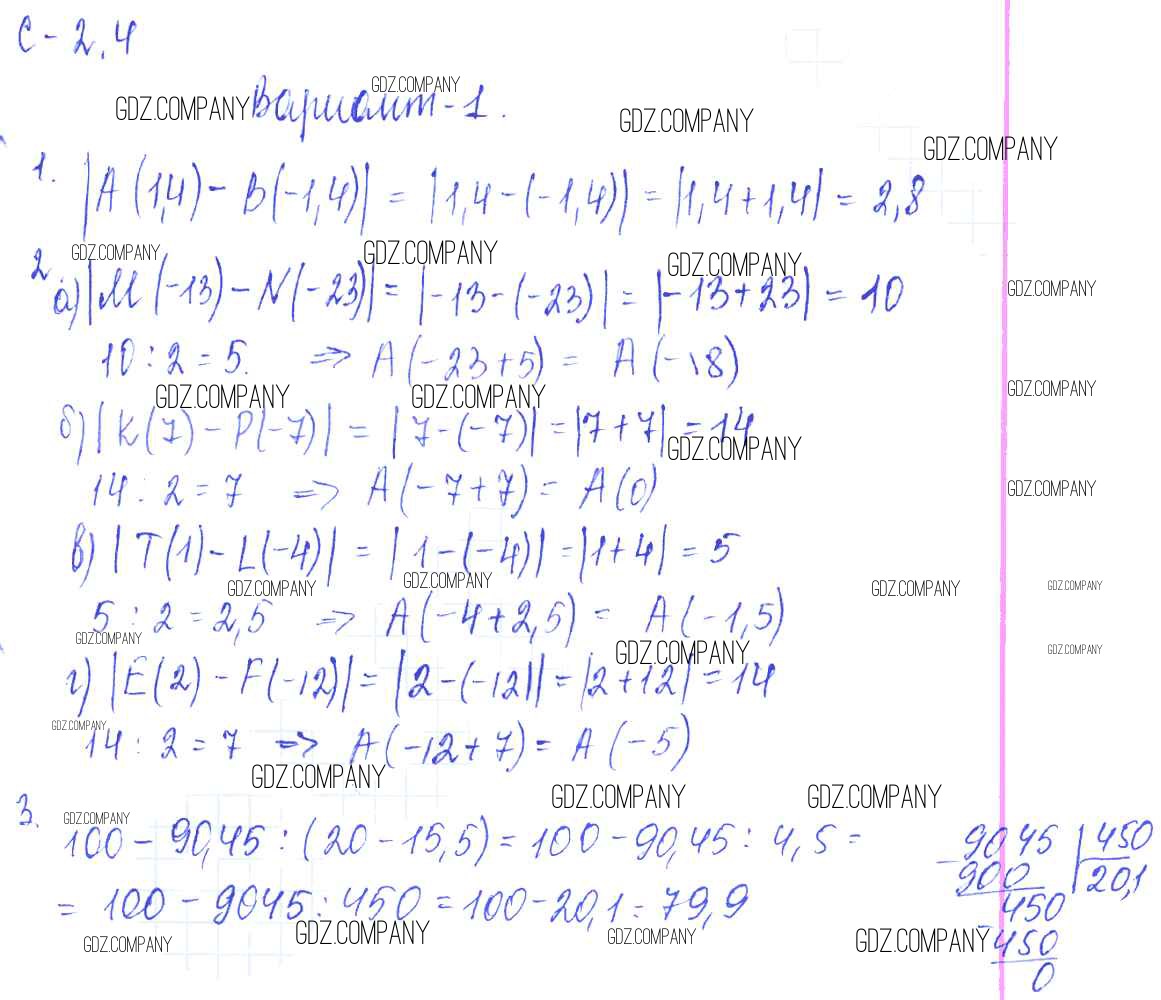 С - 2.4
GDZ.COMPANY
GDZ.COMPANY Вариант-1. GDZ.COMPANY
GDZ.COMPANY
1. |A(1,4) - B(-1,4)| = |1,4-(-1,4)| = |1,4+1,4| = 2,8
GDZ.COMPANY GDZ.COMPANY GDZ.COMPANY
2. а) |M(-13) - N(-23)| = |-13-(-23)| = |-13+23| = 10
GDZ.COMPANY
10 : 2 = 5. => A(-23+5) = A(-18)
GDZ.COMPANY GDZ.COMPANY GDZ.COMPANY
б) |K(7) - P(-7)| = |7-(-7)| = |7+7| = 14
GDZ.COMPANY
14 : 2 = 7 => A(-7+7) = A(0)
GDZ.COMPANY
в) |T(1) - L(-4)| = |1-(-4)| = |1+4| = 5
GDZ.COMPANY GDZ.COMPANY GDZ.COMPANY GDZ.COMPANY
5 : 2 = 2,5 => A(-4+2,5) = A(-1,5)
GDZ.COMPANY GDZ.COMPANY GDZ.COMPANY
г) |E(2) - F(-12)| = |2-(-12)| = |2+12| = 14
GDZ.COMPANY
14 : 2 = 7 => A(-12+7) = A(-5)
GDZ.COMPANY GDZ.COMPANY GDZ.COMPANY
3. GDZ.COMPANY
100 - 90,45 : (20 - 15,5) = 100 - 90,45 : 4,5 =
= 100 - 9045 : 450 = 100 - 20,1 = 79,9
GDZ.COMPANY GDZ.COMPANY GDZ.COMPANY GDZ.COMPANY
- 9045 | 450
900 | 20,1
450
- 450
0